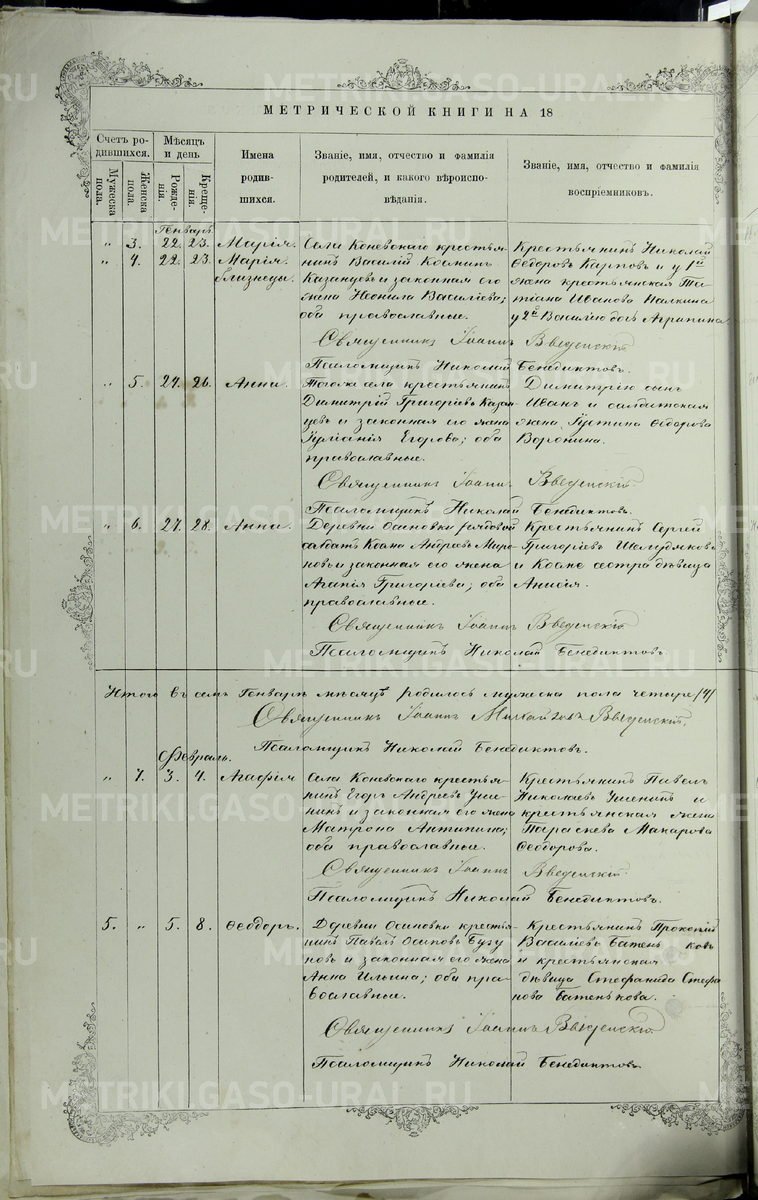 МЕТРИЧЕСКОЙ КНИГИ НА 18
Счетъ ро-
дившихся.
Мужеска
пола.
Женска
пола.
Мѣсяцъ
и день
Рожде-
нія.
Креще-
нія.
Имена
родив-
шихся.
Званіе, имя, отчество и фамилія
родителей, и какого вѣроиспо-
вѣданія.
Званіе, имя, отчество и фамилія
воспріемниковъ.
Генварь.
„ 3. 22. 23. Марія.
„ 4. 22. 23. Марія.
близнецы.
Села Коневскаго крестья-
нинъ Василій Козминъ
Казанцевъ и законная его
жена Неонила Василіева;
оба православные.
Крестьянинъ Николай
Ѳедоровъ Карповъ и у 1й
жена крестьянская Та-
тіана Иванова Налкина
у 2й Василію дочь Агрипина
Священникъ Іоаннъ Введенскій
Псаломщикъ Николай Бенедиктовъ.
„ 5. 24. 26. Анна.
Тогоже села крестьянинъ
Димитрій Григоріевъ Казан
цевъ и законная его жена
Іуліанія Егорова; оба
православные.
Димитрію сынъ
Иванъ и салдатская
жена Іустина Ѳедорова
Воронина.
Священникъ Іоаннъ Введенскій
Псаломщикъ Николай Бенедиктовъ.
„ 6. 27. 28. Анна.
Деревни Осиновки рядовой
салдатъ Андреевъ Миро
новъ и законная его жена
Агапія Григоріева; оба
православные.
Крестьянинъ Сергей
Григоріевъ Шелудяковъ
и сестра дѣвица
Анисія.
Священникъ Іоаннъ Введенскій
Псаломщикъ Николай Бенедиктовъ
Итого въ семъ Генварѣ мѣсяцѣ родилось мужеска пола четыре /4/
Священникъ Іоаннъ Михайловъ Введенскій.
Псаломщикъ Николай Бенедиктовъ.
Февраль.
„ 7. 3. 4. Агафія
Села Коневскаго крестья-
нинъ Егоръ Андреевъ Уше-
нинъ и законная его жена
Матрона Антипина;
оба православные.
Крестьянинъ Павелъ
Николаевъ Ушенинъ и
крестьянская жена
Параскева Макарова
Ѳеодорова.
Священникъ Іоаннъ Введенскій
Псаломщикъ Николай Бенедиктовъ.
5. „ 5. 8. Ѳеодоръ.
Деревни Осиновки крестья-
нинъ Павелъ Осиповъ Бугу
новъ и законная его жена
Анна Ильина; оба пра-
вославные.
Крестьянинъ Прокопій
Василіевъ Батень ковъ
и крестьянская
дѣвица Стефанида Стефа
нова Батенькова.
Священникъ Іоаннъ Введенскій
Псаломщикъ Николай Бенедиктовъ.
METRIKI.GASO-URAL.RU